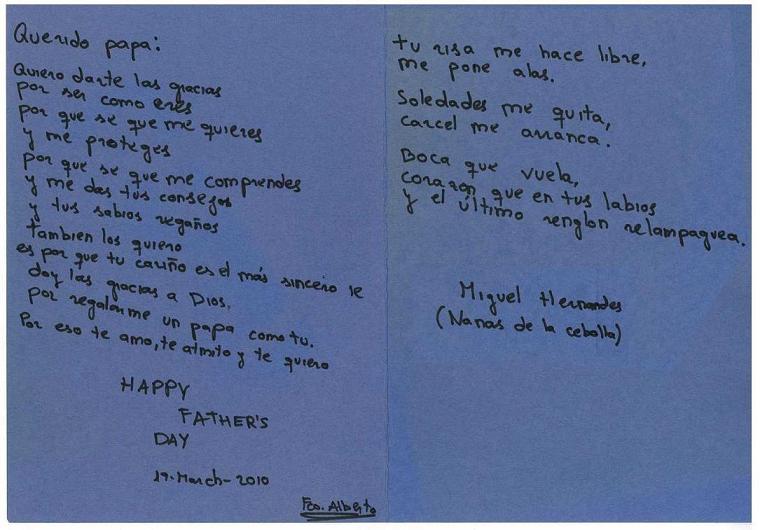 Querido papa:
Quiero darte las gracias
por ser como eres
por que se que me quieres
y me proteges
por que se que me comprendes
y me das tus consejos
y tus sabios regaños
tambien los quiero
es por que tu cariño es el más sincero le
doy las gracias a Dios,
por regalarme un papa como tu.
Por eso te amo, te atmito y te quiero
HAPPY
FATHER'S
DAY
19-March-2010
Fco. Alberto
tu risa me hace libre,
me pone alas.
Soledades me quita,
carcel me arranca.
Boca que vuela,
corazon que en tus labios
y el último renglon relampaguea.
Miguel Hernandes
(Nanas de la cebolla)